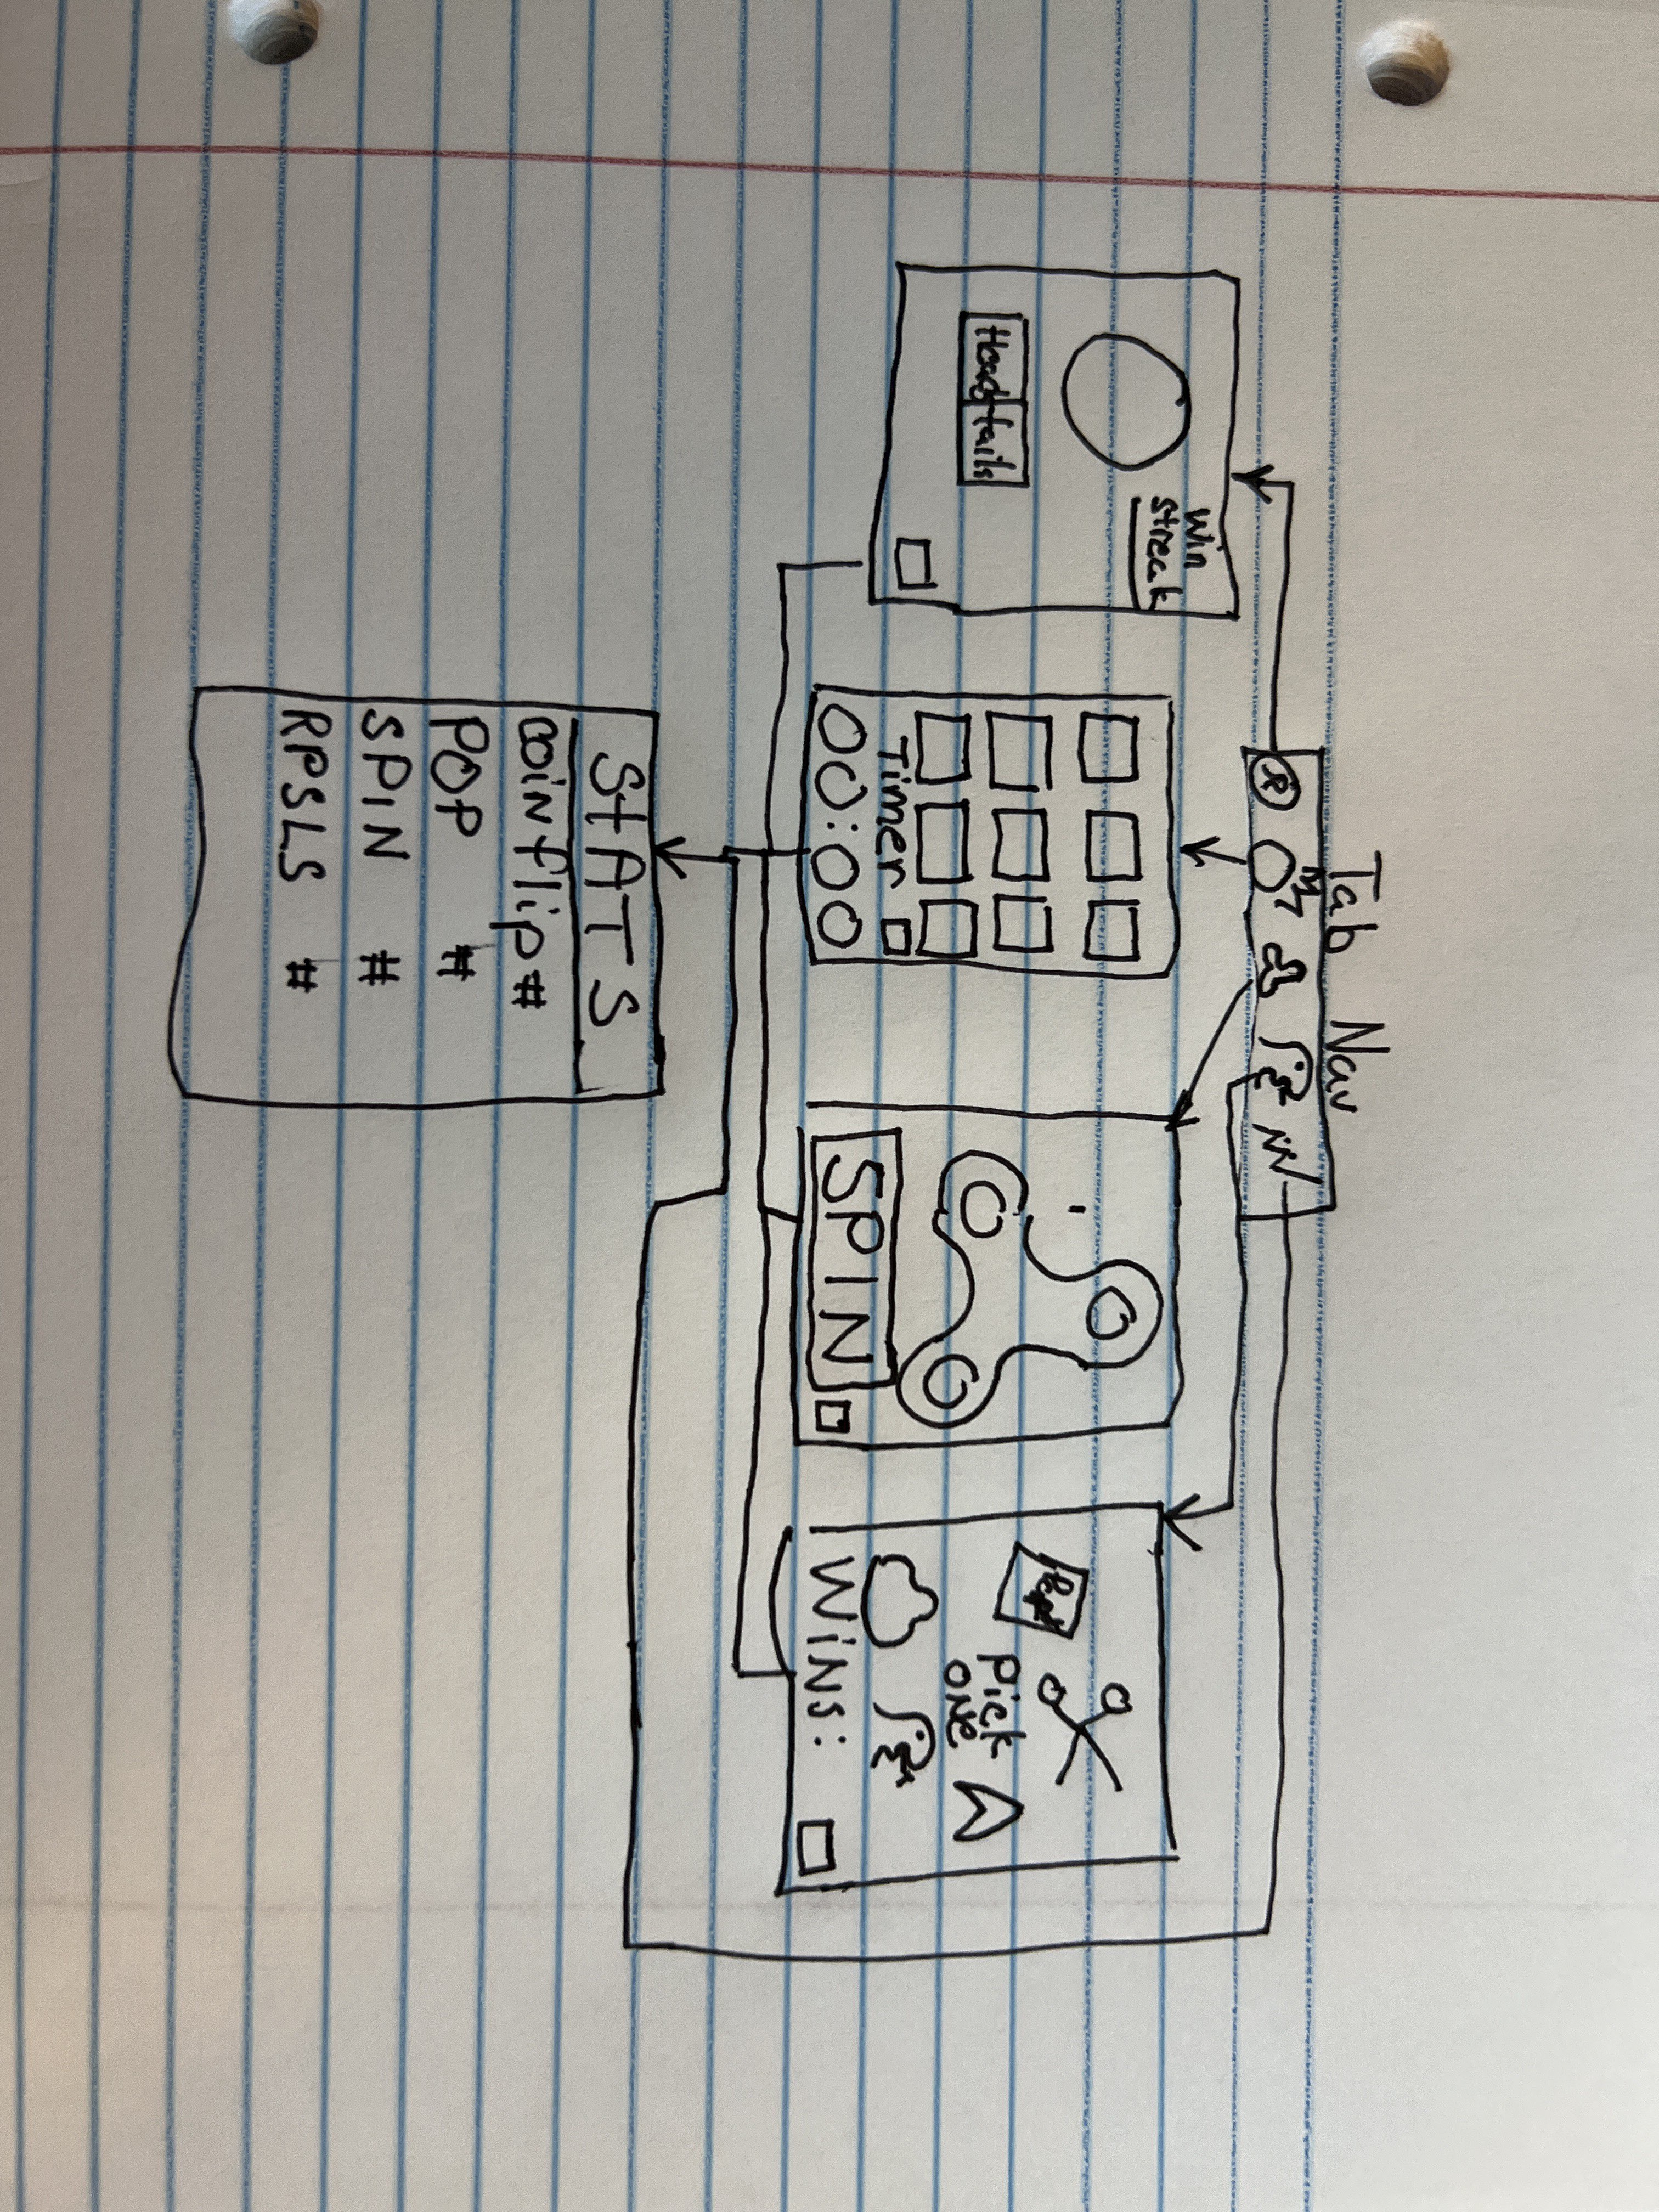 Tab Nav
Win
streak
Heads tails
Timer
00:00
SPIN
Pick
ONE
WiNS:
StATS
Coin flip #
POP #
SPIN #
RPSLS #